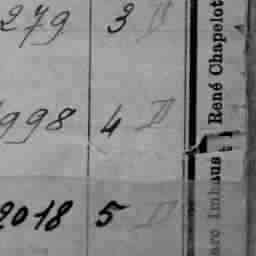 279 3 D
998 4 D
2018 5 D
René Chapelot
arc Imhaus